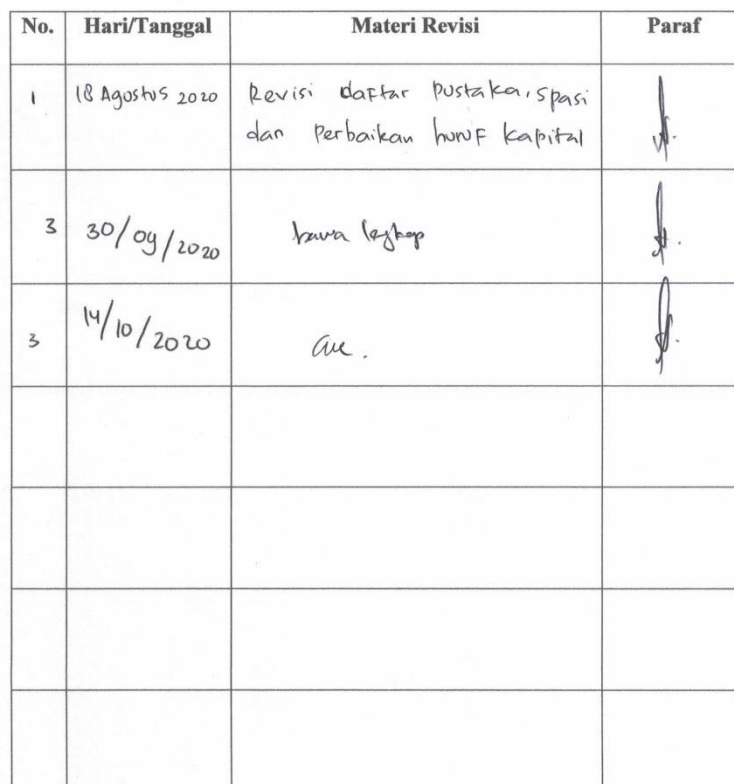 No. Hari/Tanggal Materi Revisi Paraf
1 18 Agustus 2020 Revisi daftar pustaka, spasi
dan perbaikan huruf kapital
3 30/09/2020 bawa lengkap
3 14/10/2020